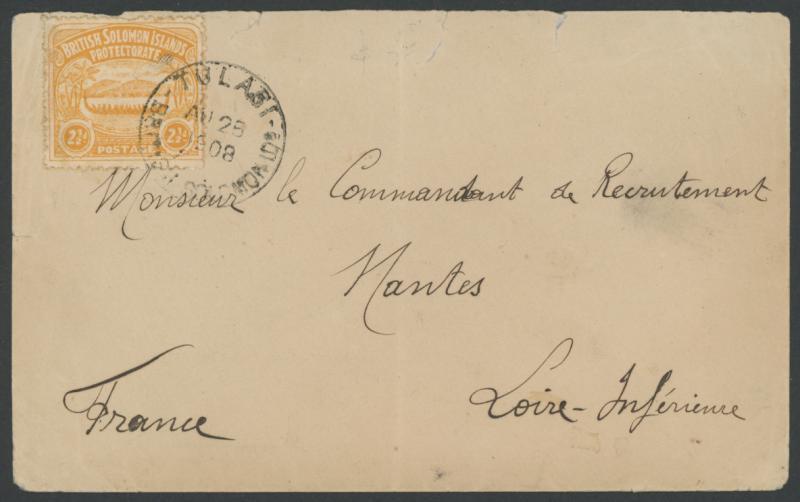 BRITISH SOLOMON ISLANDS
PROTECTORATE
2½d 2½d
POSTAGE
TULAGI
AU 28
908
Monsieur le Commandant de Recrutement
Nantes
Loire-Inférieure
France